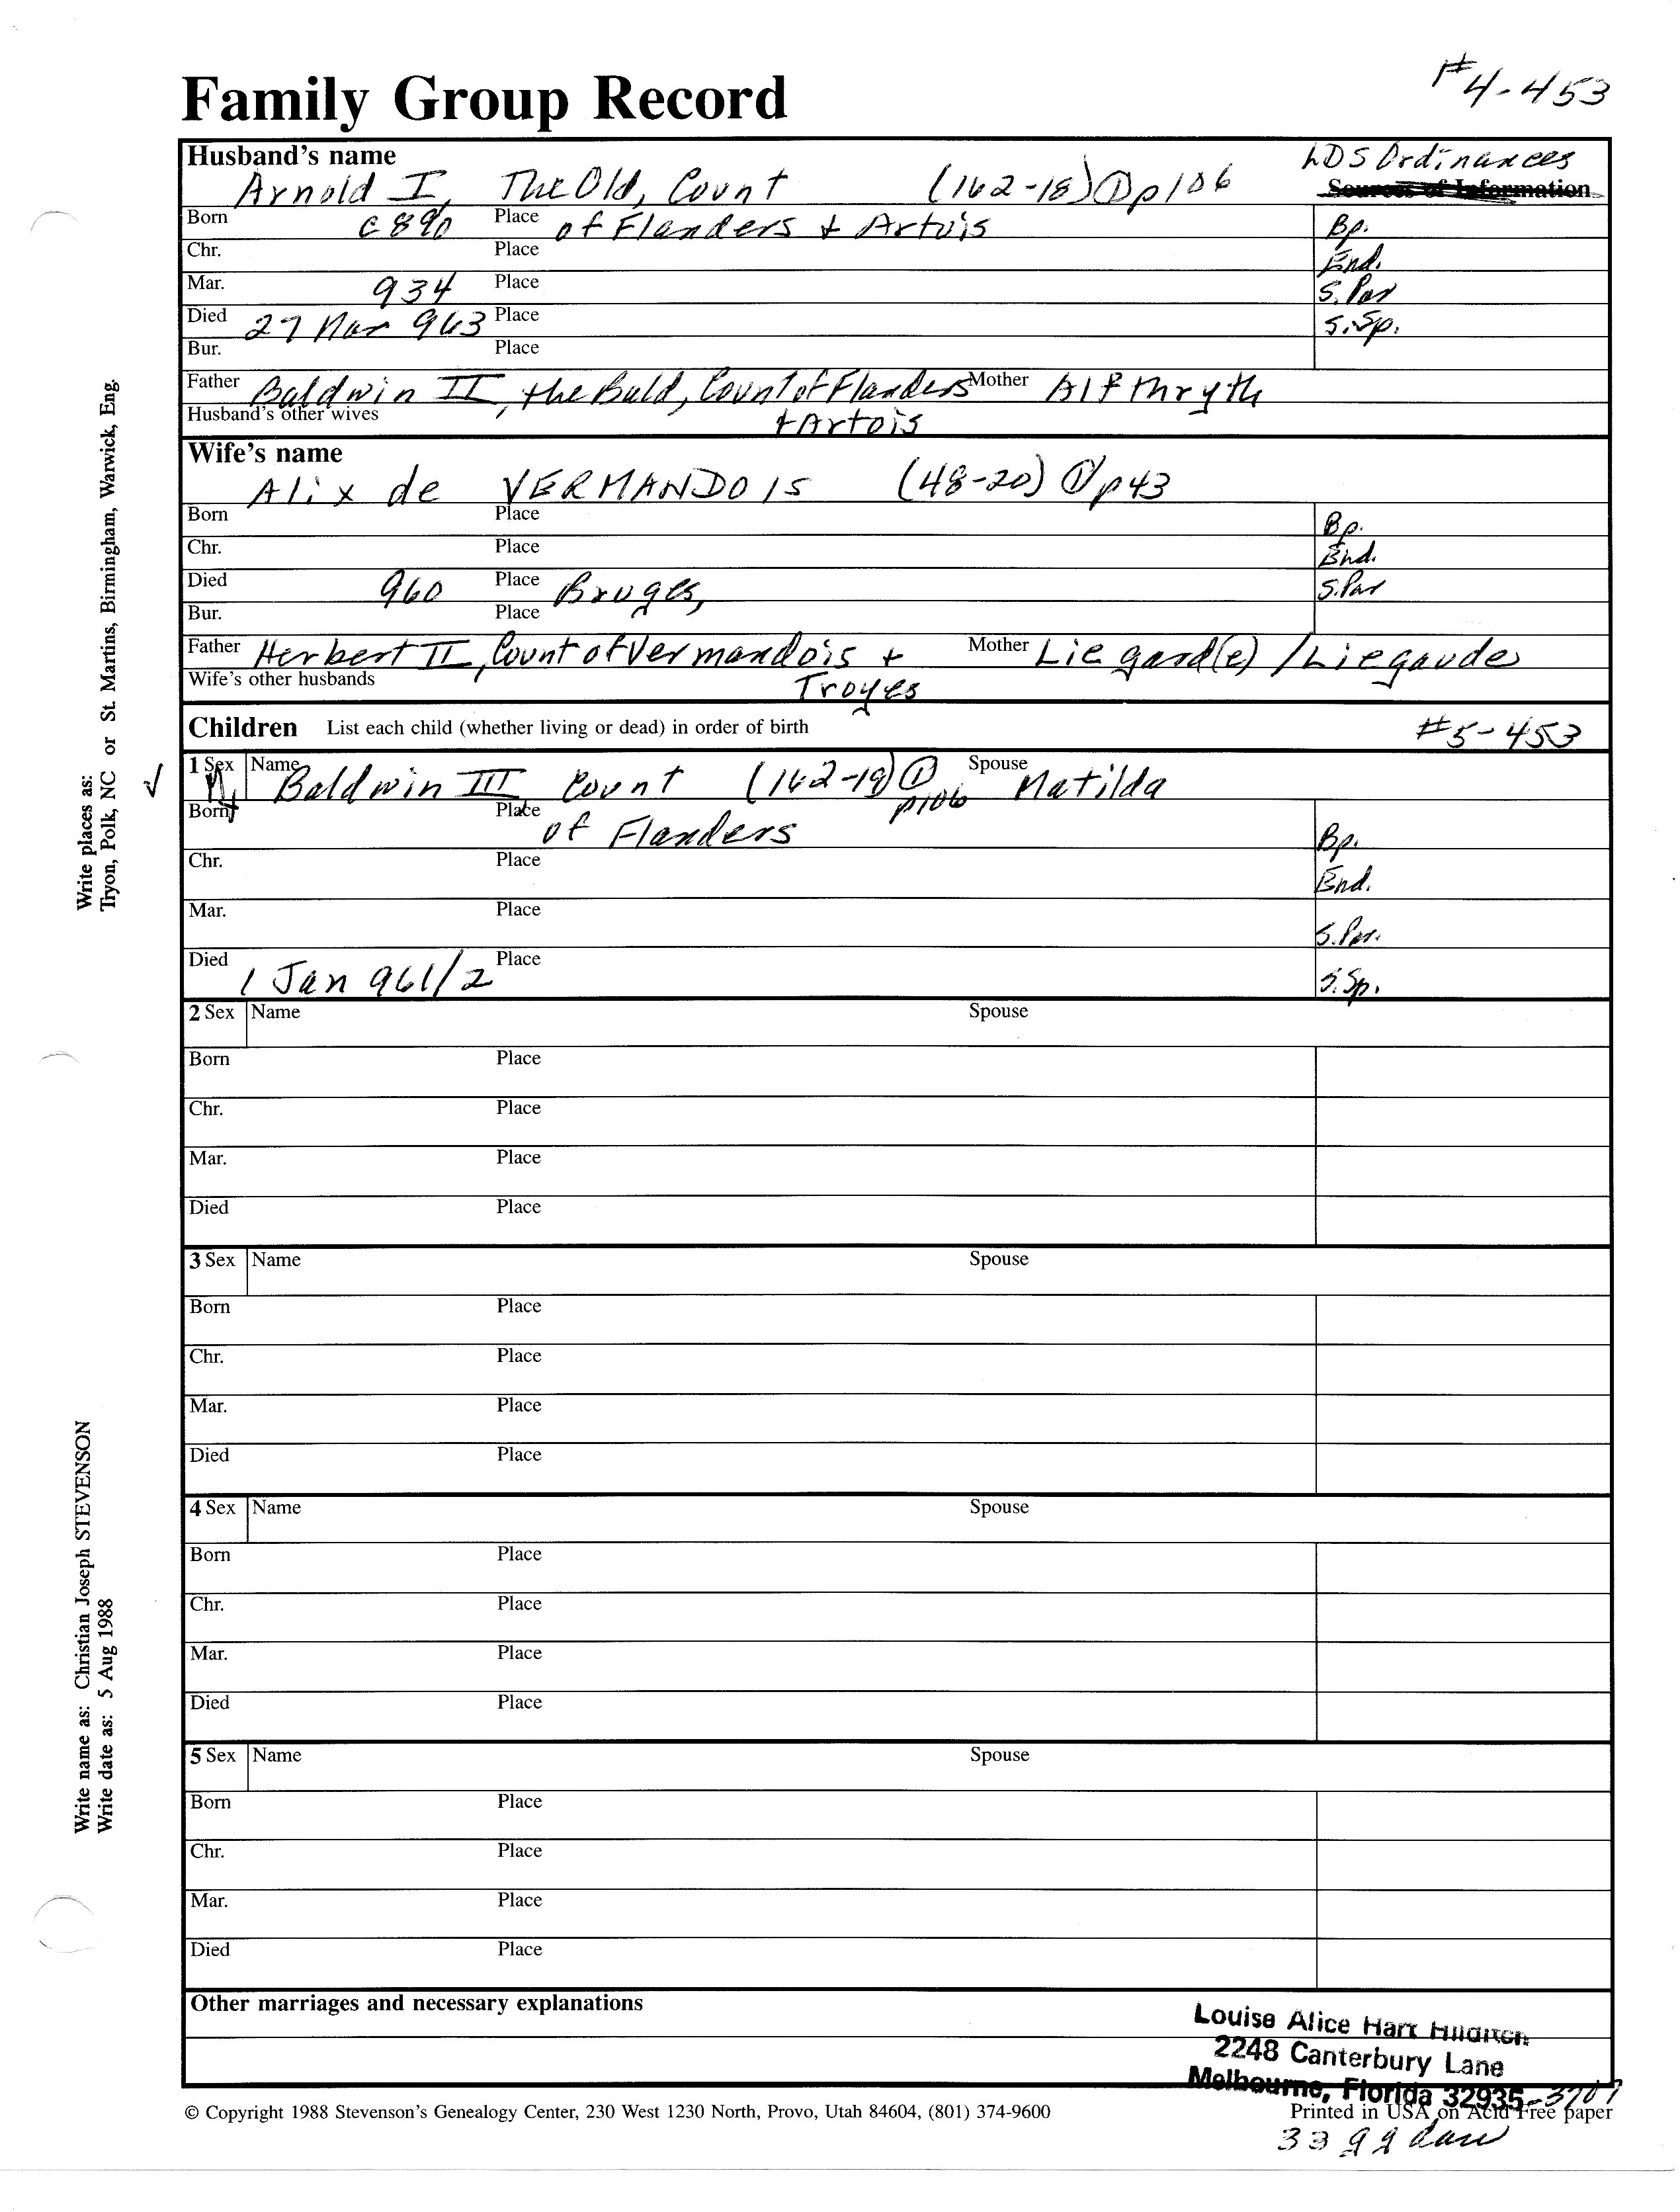 #4-453
Family Group Record
Husband's name
LDS Ordinances
Arnold I, The Old, Count (162-18) ① p106
Sources of Information
Born c 890 Place of Flanders + Artois Bp.
Chr. Place End.
Mar. 934 Place S. Par
Died 27 Mar 963 Place S. Sp.
Bur. Place
Father Baldwin II, the Bald, Count of Flanders Mother Alfthryth
Husband's other wives + Artois
Wife's name
Alix de VERMANDOIS (48-20) ① p43
Born Place Bp.
Chr. Place End.
Died 960 Place Bruges, S. Par
Bur. Place
Father Herbert II, Count of Vermandois + Mother Lie gard(e) / Liegarde
Wife's other husbands Troyes
Children List each child (whether living or dead) in order of birth #5-453
√ 1 Sex M Name Baldwin III Count (162-19) ① p106 Spouse Matilda
Born Place of Flanders Bp.
Chr. Place End.
Mar. Place S. Par.
Died 1 Jan 961/2 Place S. Sp.
2 Sex Name Spouse
Born Place
Chr. Place
Mar. Place
Died Place
3 Sex Name Spouse
Born Place
Chr. Place
Mar. Place
Died Place
4 Sex Name Spouse
Born Place
Chr. Place
Mar. Place
Died Place
5 Sex Name Spouse
Born Place
Chr. Place
Mar. Place
Died Place
Other marriages and necessary explanations
Louise Alice Hart Hilditch
2248 Canterbury Lane
Melbourne, Florida 32935-3707
© Copyright 1988 Stevenson's Genealogy Center, 230 West 1230 North, Provo, Utah 84604, (801) 374-9600
Printed in USA on Acid Free paper
Write places as:
Tryon, Polk, NC or St. Martins, Birmingham, Warwick, Eng.
Write name as: Christian Joseph STEVENSON
Write date as: 5 Aug 1988